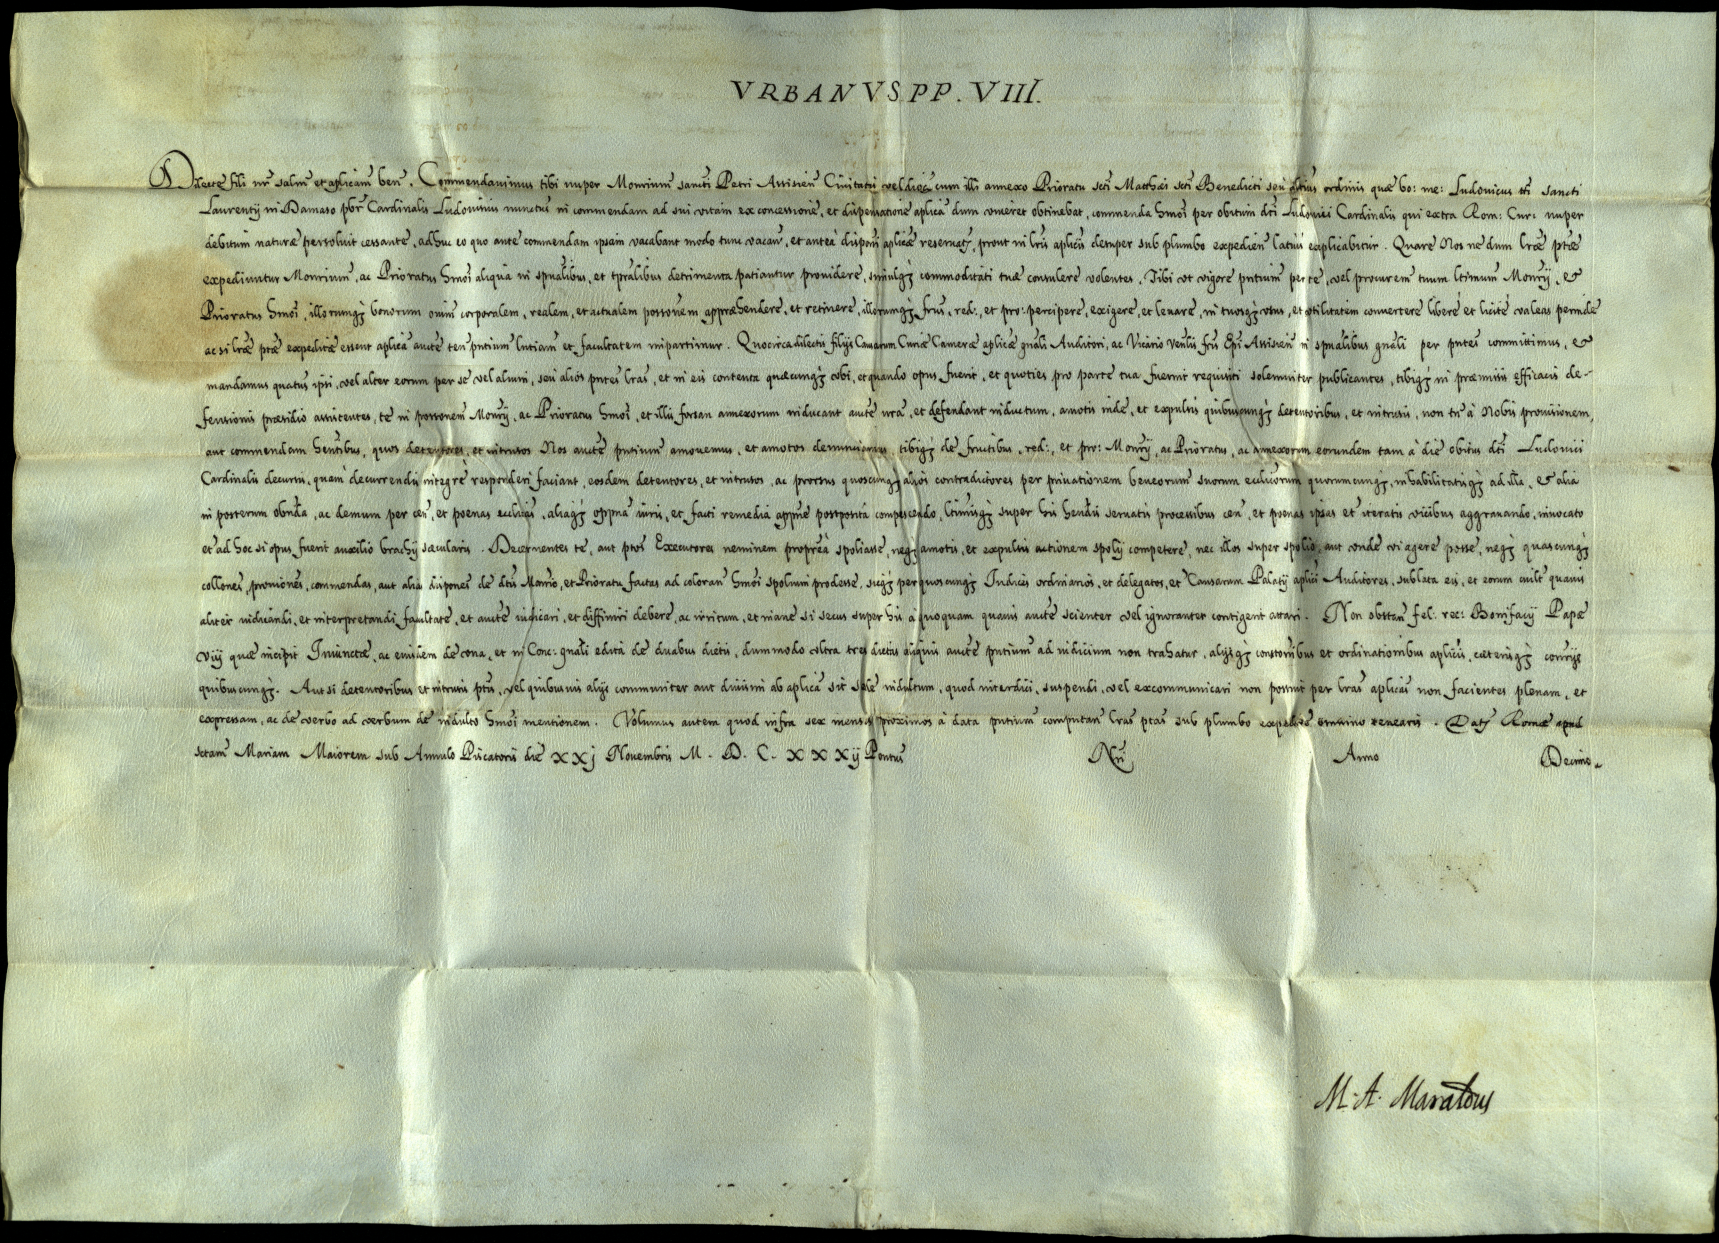 VRBANVS PP. VIII.
Dilecte fili nr̃ salm̃ et aplicam̃ ben̄. Commendauimus tibi nuper Monrium̃ sancti Petri Assisien̄ Ciuitatis vel dioec̄ cum illi annexo Prioratu scti Matthæi scti Benedicti seu alterius ordinis quæ bo: me: Ludouicus tti sancti
Laurentij in Damaso pbr̃ Cardinalis Ludouisius nunctus in commendam ad sui vitam ex concessione, et dispensatione aplica dum viueret obtinebat, commenda hmõi per obitum dcti Ludouici Cardinalis qui extra Rom: Cur: nuper
debitum naturæ persoluit cessante, adhuc eo quo ante commendam ipsam vacabant modo tunc vacan̄, et anteà disponi aplicæ reseruat, prout in lrĩs aplicis desuper sub plumbo expedien̄ latius explicabitur. Quare Nos ne dum lræ ptæ
expediuntur Monrium̃, ac Prioratus hmõi aliqua in spualibus, et tpralibus detrimenta patiantur prouidere, simulq; commoditati tuæ consulere volentes, Tibi vt vigore pntium̃ per te, vel procurem̃ tuum ltimum̃ Monrij, &
Prioratus hmõi, illorumq; bonorum oium̃ corporalem, realem, et actualem possonem̃ appræhendere, et retinere, illorumq; frus̃, red:, et pro: percipere, exigere, et leuare, in tuosq; vsus, et vtilitatem conuertere liberè et licitè valeas perinde
ac si lræ ptæ expeditæ essent aplica aucte ten̄ pntium̃ lntiam̃ et facultatem impartimur. Quocirca dilectis filijs Causarum Curiæ Cameræ aplicæ gnali Auditori, ac Vicario Venlis fris Epi Assisien̄ in spualibus gnali per pntes committimus, &
mandamus quatus ipsi, vel alter eorum per se vel alium, seu alios pntes lras, et in eis contenta quæcunq; vbi, et quando opus fuerit, et quoties pro parte tua fuerint requisiti solemniter publicantes, tibiq; in præmissis efficacis de-
fensionis præsidio assistentes, te in possonem̃ Monrij, ac Prioratus hmõi, et illis forsan annexorum inducant aucte nra, et defendant inductum, amotis inde, et expulsis quibuscunq; detentoribus, et intrusis, non tn à Nobis prouisionem,
aut commendam hentibus, quos detentores, et intrusos Nos aucte pntium̃ amouemus, et amotos denunciamus, tibiq; de fructibus, red:, et pro: Monrij, ac Prioratus, ac annexorum eorundem tam à die obitus dcti Ludouici
Cardinalis decursis, quàm decurrendis integrè responderi faciant, eosdem detentores, et intrusos, ac prorsus quoscunq; alios contradictores per priuationem beneorum̃ suorum eccliorum̃ quorumcunq;, inhabilitatisq; ad illa, & alia
in posterum obnda, ac demum per cen̄, et poenas ecclicas, aliaq; oppna iuris, et facti remedia appne postposita compescendo, ltimisq; super his hendis seruatis processibus cen̄, et poenas ipsas et iteratis vicibus aggrauando, inuocato
et ad hoc si opus fuerit auxilio brachij sæcularis. Decernentes te, aut ptos Executores neminem proptereà spoliasse, neq; amotis, et expulsis actionem spolij competere, nec illos super spolio, aut vnde vi agere posse, neq; quascunq;
collones, prouiones, commendas, aut alias dispones de dctis Monrio, et Prioratu factas ad coloran̄ hmõi spolium prodesse, sicq; per quoscunq; Iudices ordinarios, et delegatos, et Causarum Palatij aplici Auditores, sublata eis, et eorum cuilt quauis
aliter iudicandi, et interpretandi facultate, et aucte iudicari, et diffiniri debere, ac irritum, et inane si secus super his à quoquam quauis aucte scienter vel ignoranter contigerit attari. Non obstan̄ fel: rec: Bonifacij Papæ
viij quæ incipit Iniunctæ, ac eiusdem de vna, et in Conc: gnali edita de duabus dietis, dummodo vltra tres dietas aliquis aucte pntium̃ ad iudicium non trahatur, alijsq; constonibus et ordinationibus aplicis, cæterisq; conrijs
quibuscunq;. Aut si detentoribus et intrusis ptis, vel quibusuis alijs communiter aut diuisim ab aplica sit sede indultum, quod interdici, suspendi, vel excommunicari non possint per lras aplicas non facientes plenam, et
expressam, ac de verbo ad verbum de indulto hmõi mentionem. Volumus autem quod infra sex menses proximos à data pntium̃ computan̄ lras ptas sub plumbo expedire omnino tenearis. Dat Romæ apud
sctam Mariam Maiorem sub Annulo Piscatoris die XXj Nouembris M. D. C. XXXij Pontus Nri Anno Decimo.
M. A. Maraldus